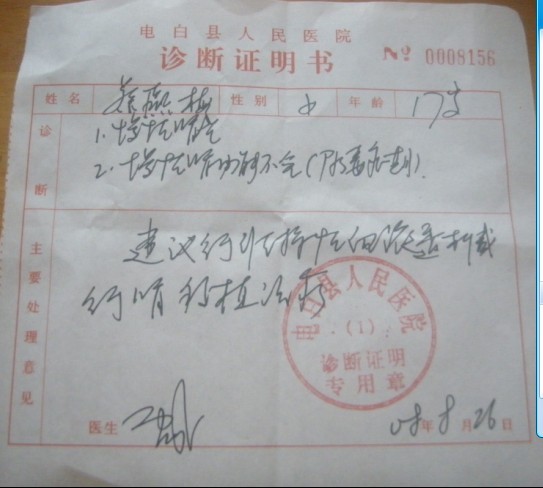 电白县人民医院
诊断证明书 № 0008156
姓名 性别 女 年龄 17岁
诊断
1. 慢性肾炎
2. 慢性肾功能不全(尿毒症期).
主要处理意见
建议行维持性血液透析或
行肾移植治疗
电白县人民医院
(1)
诊断证明
专用章
医生 08年8月26日